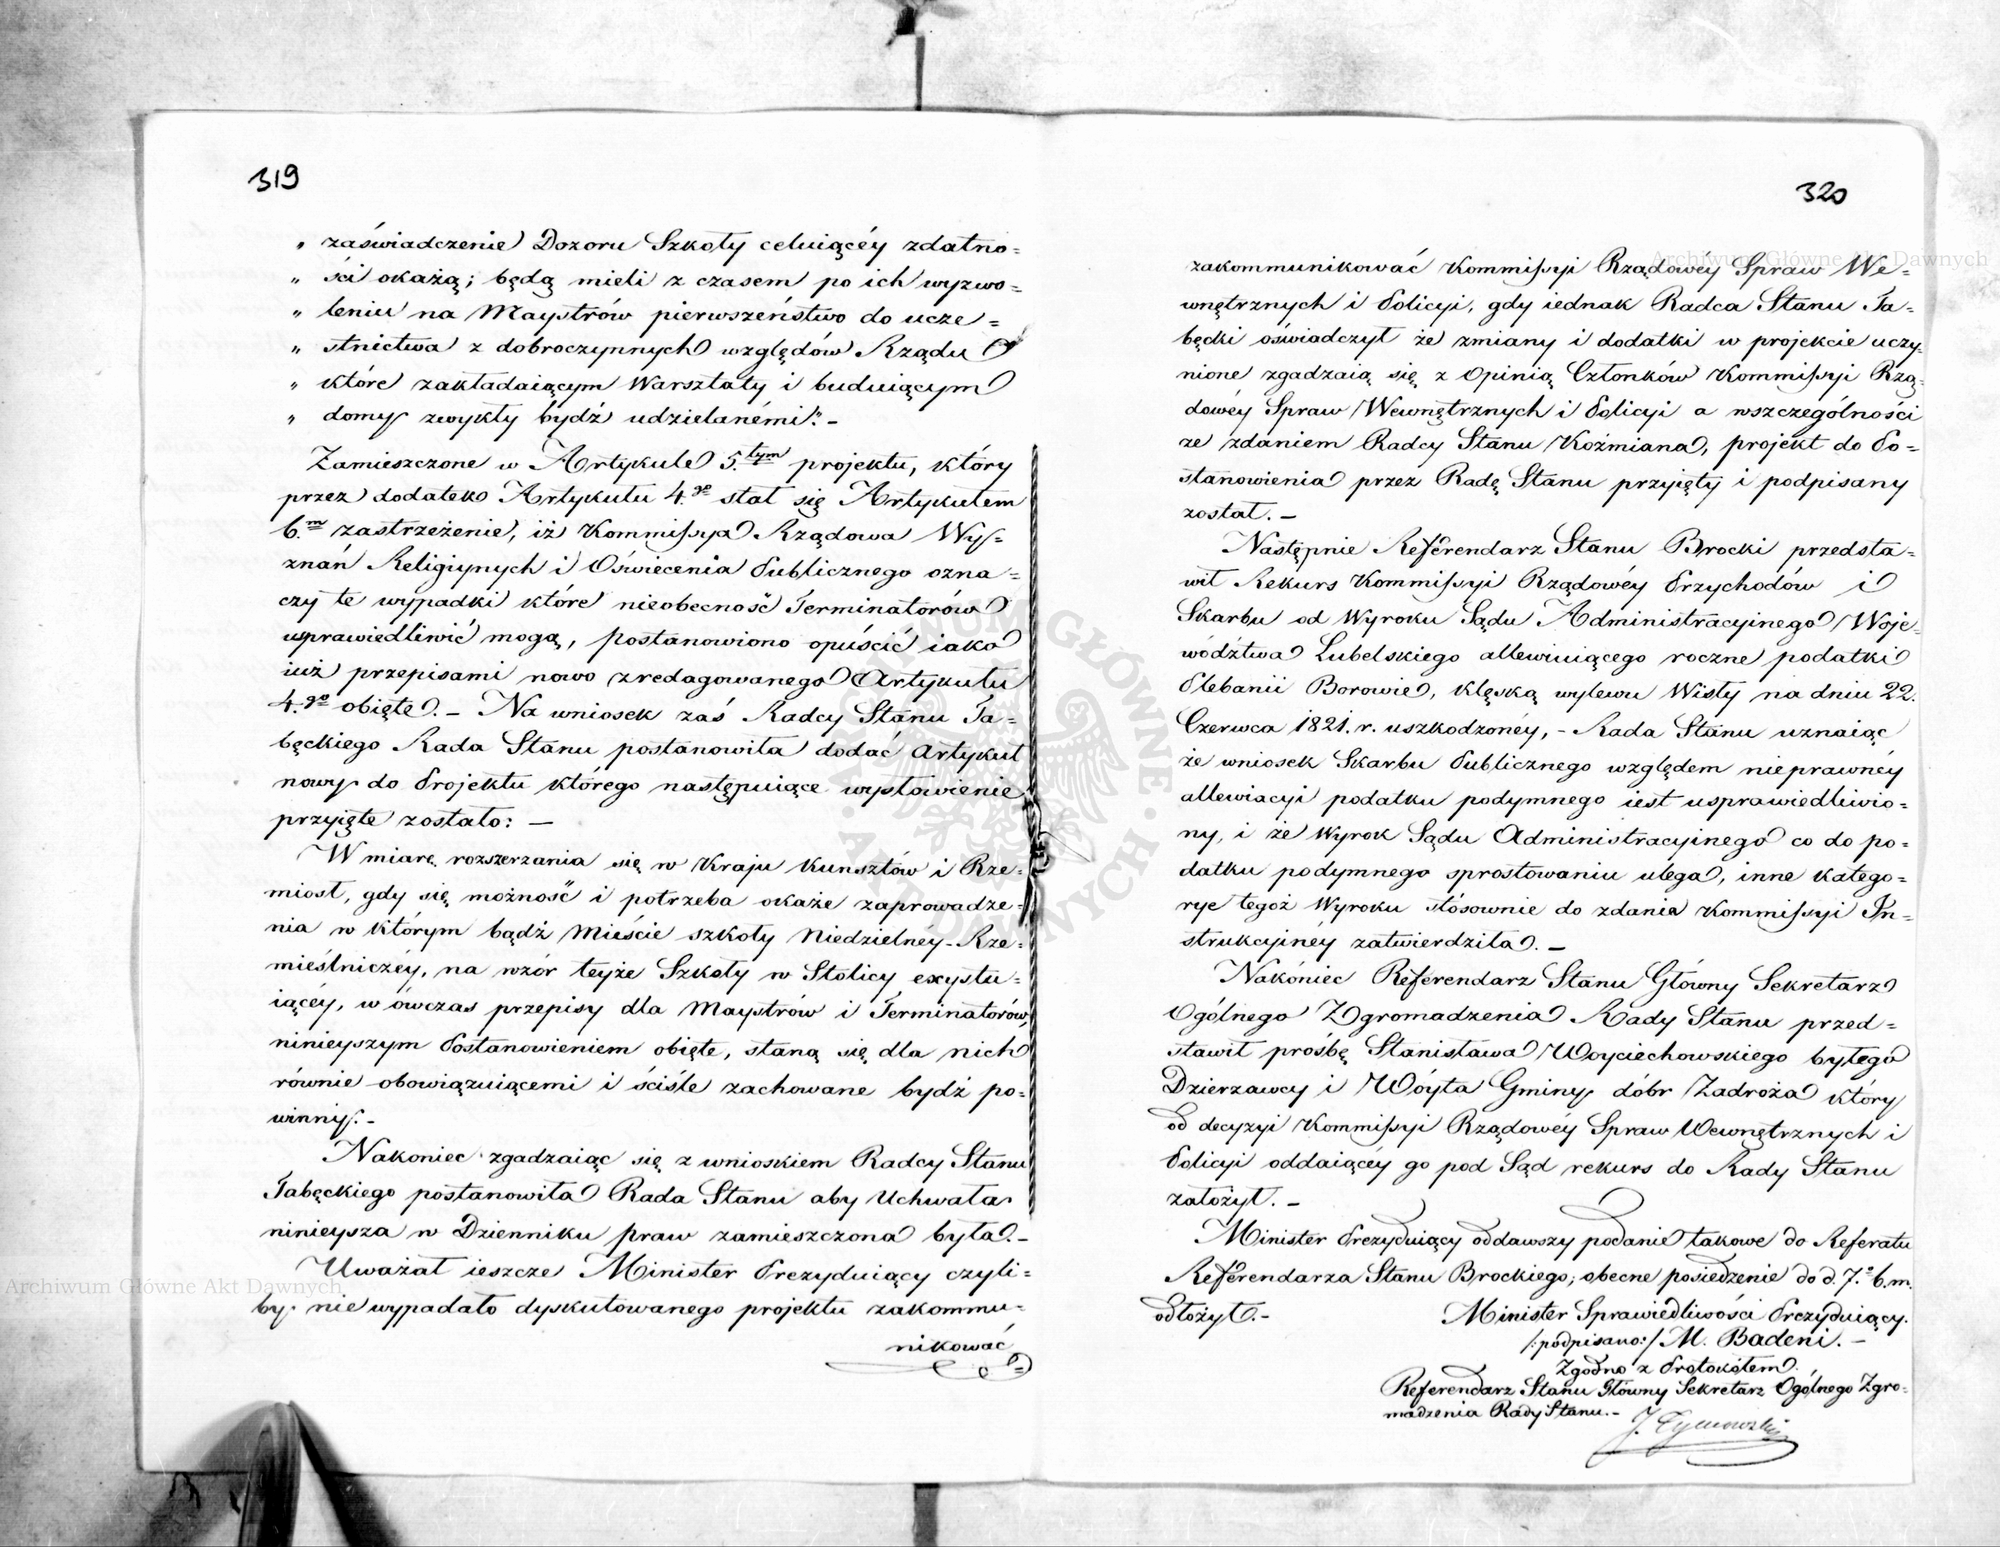 319
„ zaświadczenie Dozoru Szkoły celuiącéy zdatno=
„ ści okażą; będą mieli z czasem po ich wyzwo=
„ leniu na Maystrów pierwszeństwo do ucze=
„ stnictwa z dobroczynnych względów Rządu
„ które zakładaiącym Warsztaty i buduiącym
„ domy zwykły bydź udzielanémi". -
Zamieszczone w Artykule 5.tym projektu, który
przez dodatek Artykułu 4.go stał się Artykułem
6.m zastrzeżenie, iż Kommissya Rządowa Wy=
znań Religiynych i Oświecenia Publicznego ozna=
czy te wypadki które nieobecność Terminatorów
usprawiedliwić mogą, postanowiono opuścić iako
iuż przepisami nowo zredagowanego Artykułu
4.go obięte. - Na wniosek zaś Radcy Stanu Ta=
bęckiego Rada Stanu postanowiła dodać Artykuł
nowy do Projektu którego następuiące wysłowienie
przyięte zostało: —
W miarę rozszerzania się w Kraju Kunsztów i Rze=
miost, gdy się możność i potrzeba okaże zaprowadze=
nia w którym bądź Mieście szkoły Niedzielnéy-Rze=
mieślniczéy, na wzór teyże Szkoły w Stolicy exystu=
iącéy, w ówczas przepisy dla Maystrów i Terminatorów,
ninieyszym Postanowieniem obięte, staną się dla nich
równie obowiązuiącemi i ściśle zachowane bydź po=
winny. -
Nakoniec zgadzaiąc się z wnioskiem Radcy Stanu
Tabęckiego postanowiła Rada Stanu aby Uchwała
ninieysza w Dzienniku praw zamieszczona była. -
Uważał ieszcze Minister Prezyduiący czyli=
by nie wypadało dyskutowanego projektu zakommu=
nikować
320
zakommunikować Kommissyi Rządowéy Spraw We=
wnętrznych i Policyi, gdy iednak Radca Stanu Ta=
bęcki oświadczył że zmiany i dodatki w projekcie uczy=
nione zgadzaią się z Opinią Członków Kommissyi Rzą=
dowéy Spraw Wewnętrznych i Policyi a wszczególności
ze zdaniem Radcy Stanu Koźmiana, projekt do Po=
stanowienia przez Radę Stanu przyięty i podpisany
został. -
Następnie Referendarz Stanu Brocki przedsta=
wił Rekurs Kommissyi Rządowéy Przychodów i
Skarbu od Wyroku Sądu Administracyinego Woje=
wództwa Lubelskiego allewiuiącego roczne podatki
Plebanii Borowie, klęską wylewu Wisły na dniu 22.
Czerwca 1821. r. uszkodzonéy, - Rada Stanu uznaiąc
że wniosek Skarbu Publicznego względem nieprawnéy
allewiacyi podatku podymnego iest usprawiedliwio=
ny, i że Wyrok Sądu Administracyinego co do po=
datku podymnego sprostowaniu ulega, inne katego=
rye tegoż Wyroku stósownie do zdania Kommissyi In=
strukcyinéy zatwierdziła. -
Nakóniec Referendarz Stanu Główny Sekretarz
Ogólnego Zgromadzenia Rady Stanu przed=
stawił prosbę Stanisława Woyciechowskiego byłego
Dzierzawcy i Wóyta Gminy dóbr Zadroża który
od decyzyi Kommissyi Rządowéy Spraw Wewnętrznych i
Policyi oddaiącéy go pod Sąd rekurs do Rady Stanu
założył. -
Minister Prezyduiący oddawszy podanie takowe do Referatu
Referendarza Stanu Brockiego; obecne posiedzenie do d. 7.o b. m.
odłożył. -
Minister Sprawiedliwości Prezyduiący.
/:podpisano:/ M. Badeni. -
Zgodno z Protokółem.
Referendarz Stanu Główny Sekretarz Ogólnego Zgro=
madzenia Rady Stanu. -
J. Tymowski
Archiwum Główne Akt Dawnych
Archiwum Główne Akt Dawnych
ARCHIWUM GŁÓWNE AKT DAWNYCH